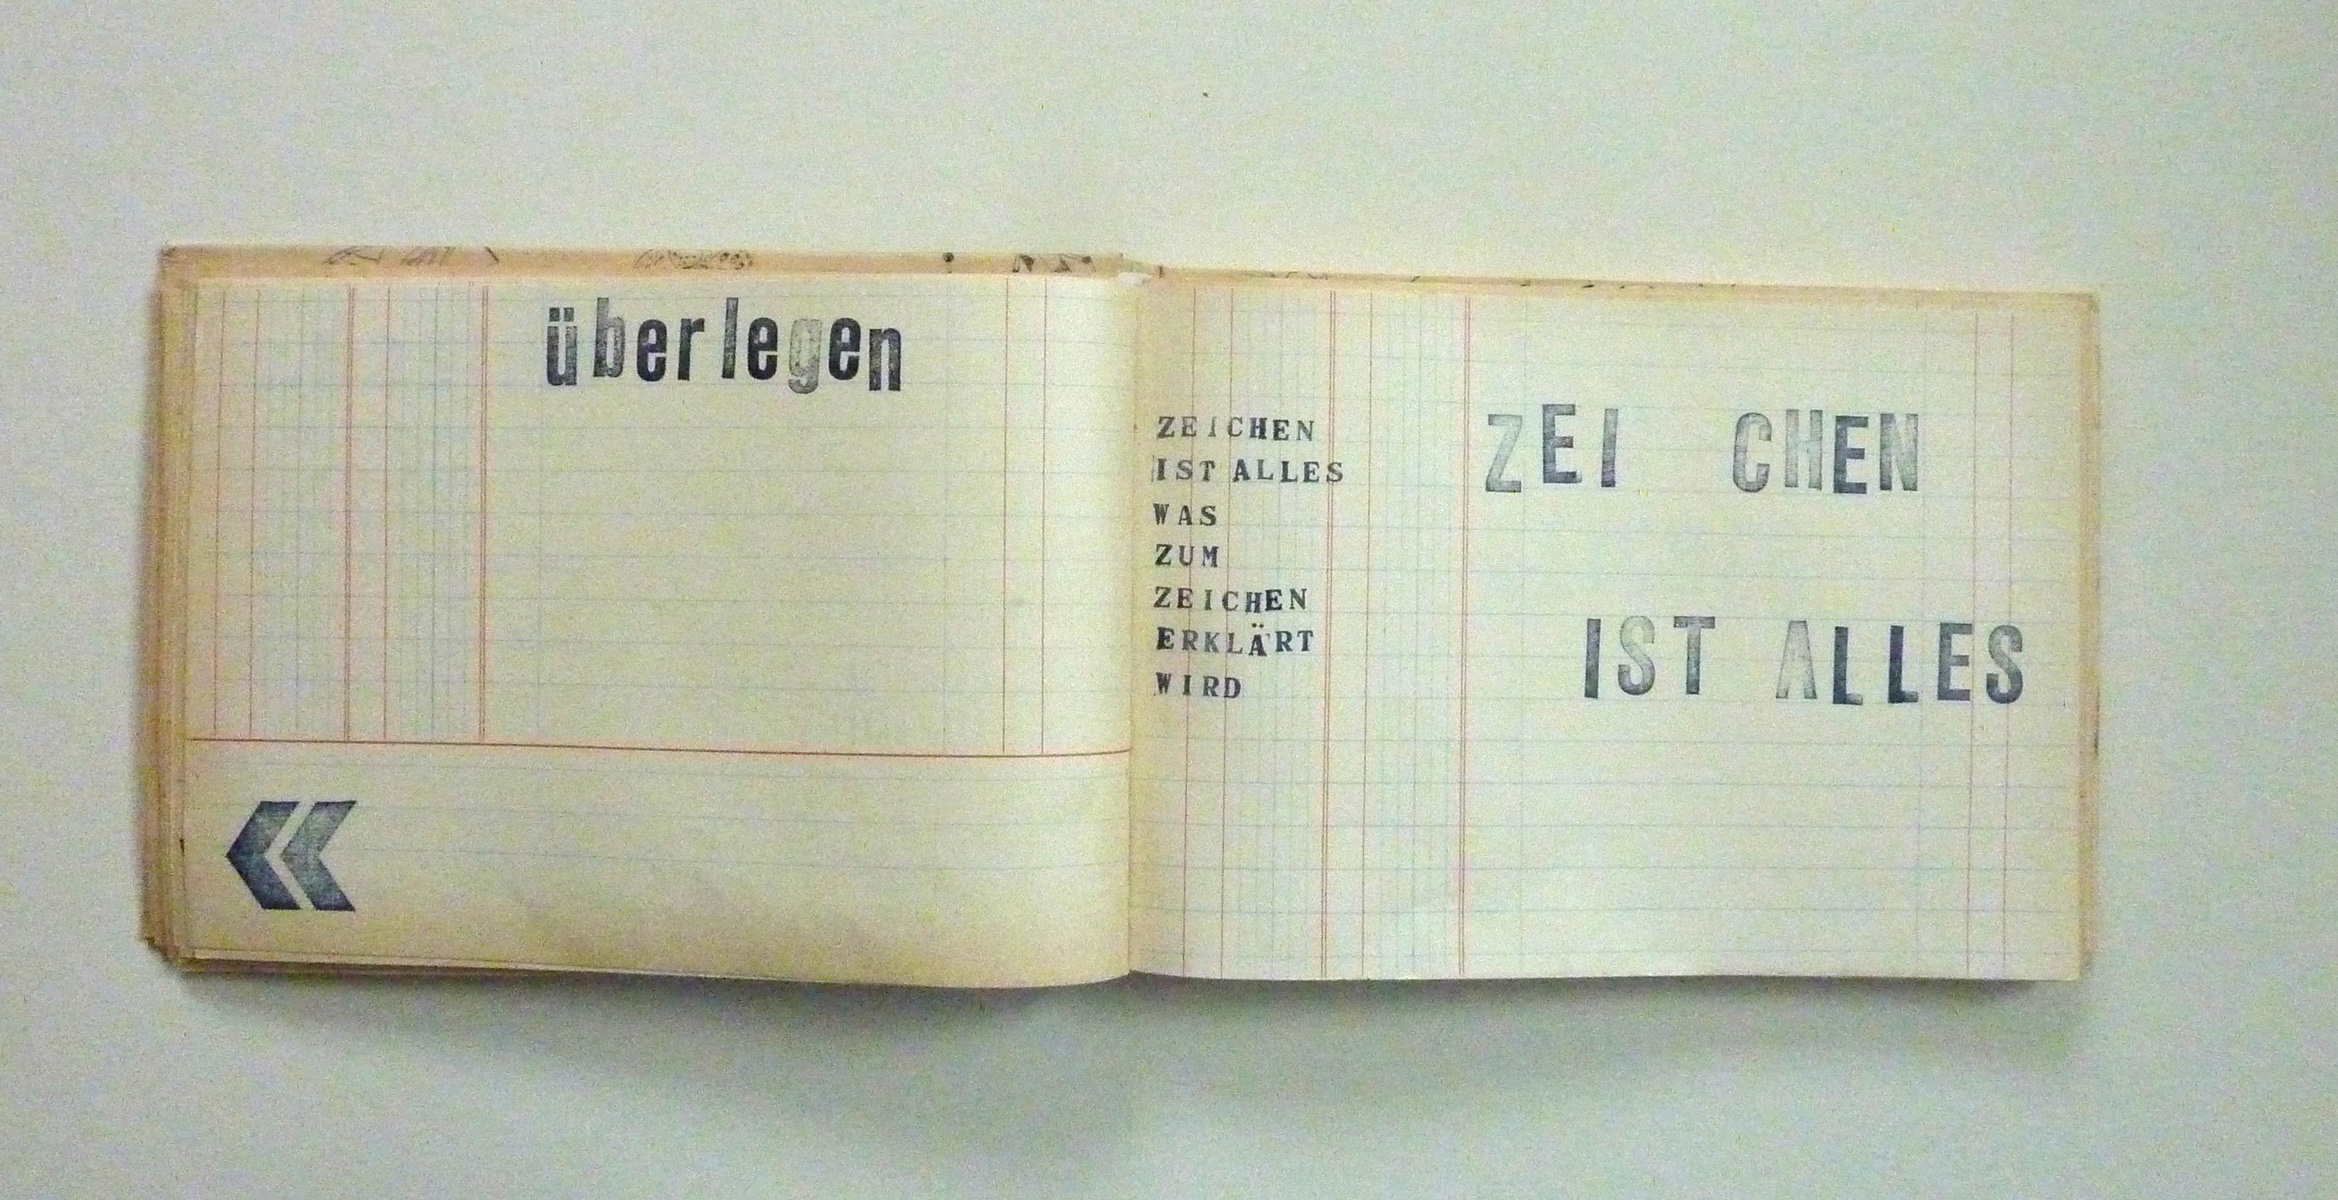 überlegen
«
ZEICHEN
IST ALLES
WAS
ZUM
ZEICHEN
ERKLÄRT
WIRD
ZEI CHEN
IST ALLES